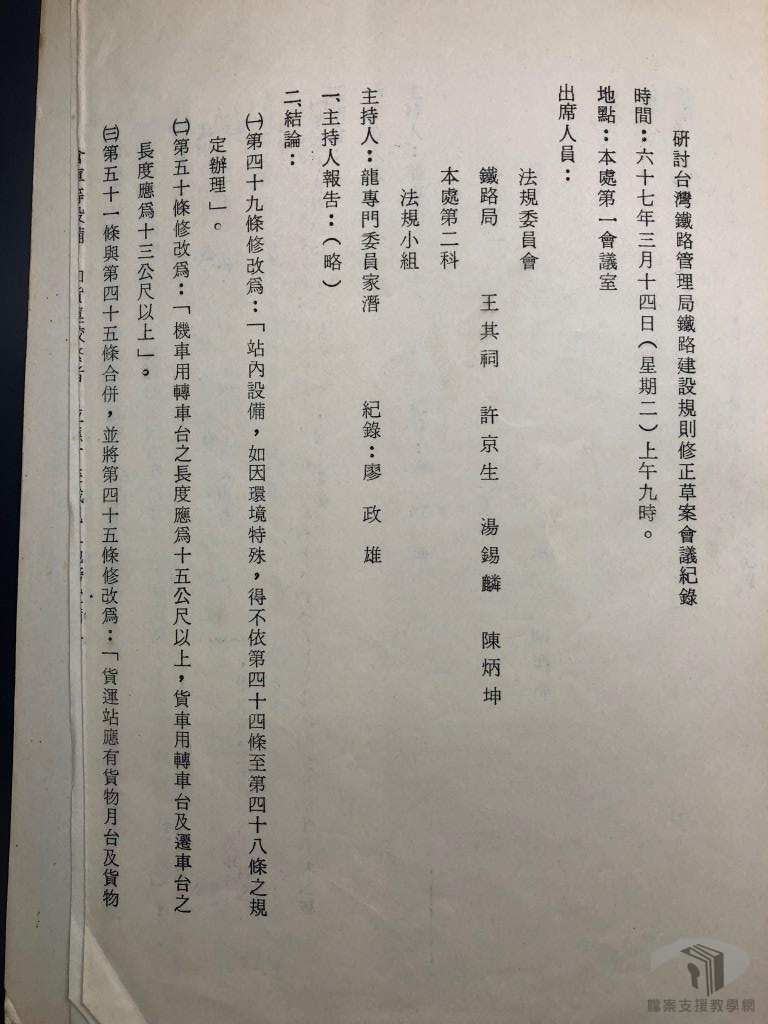 研討台灣鐵路管理局鐵路建設規則修正草案會議紀錄
時間：六十七年三月十四日（星期二）上午九時。
地點：本處第一會議室
出席人員：
法規委員會
鐵路局　王其祠　許京生　湯錫麟　陳炳坤
本處第二科
法規小組
主持人：龍專門委員家濳　紀錄：廖政雄
一、主持人報告：（略）
二、結論：
㈠第四十九條修改爲：「站內設備，如因環境特殊，得不依第四十四條至第四十八條之規
定辦理」。
㈡第五十條修改爲：「機車用轉車台之長度應爲十五公尺以上，貨車用轉車台及遷車台之
長度應爲十三公尺以上」。
㈢第五十一條與第四十五條合併，並將第四十五條修改爲：「貨運站應有貨物月台及貨物
檔案支援教學網